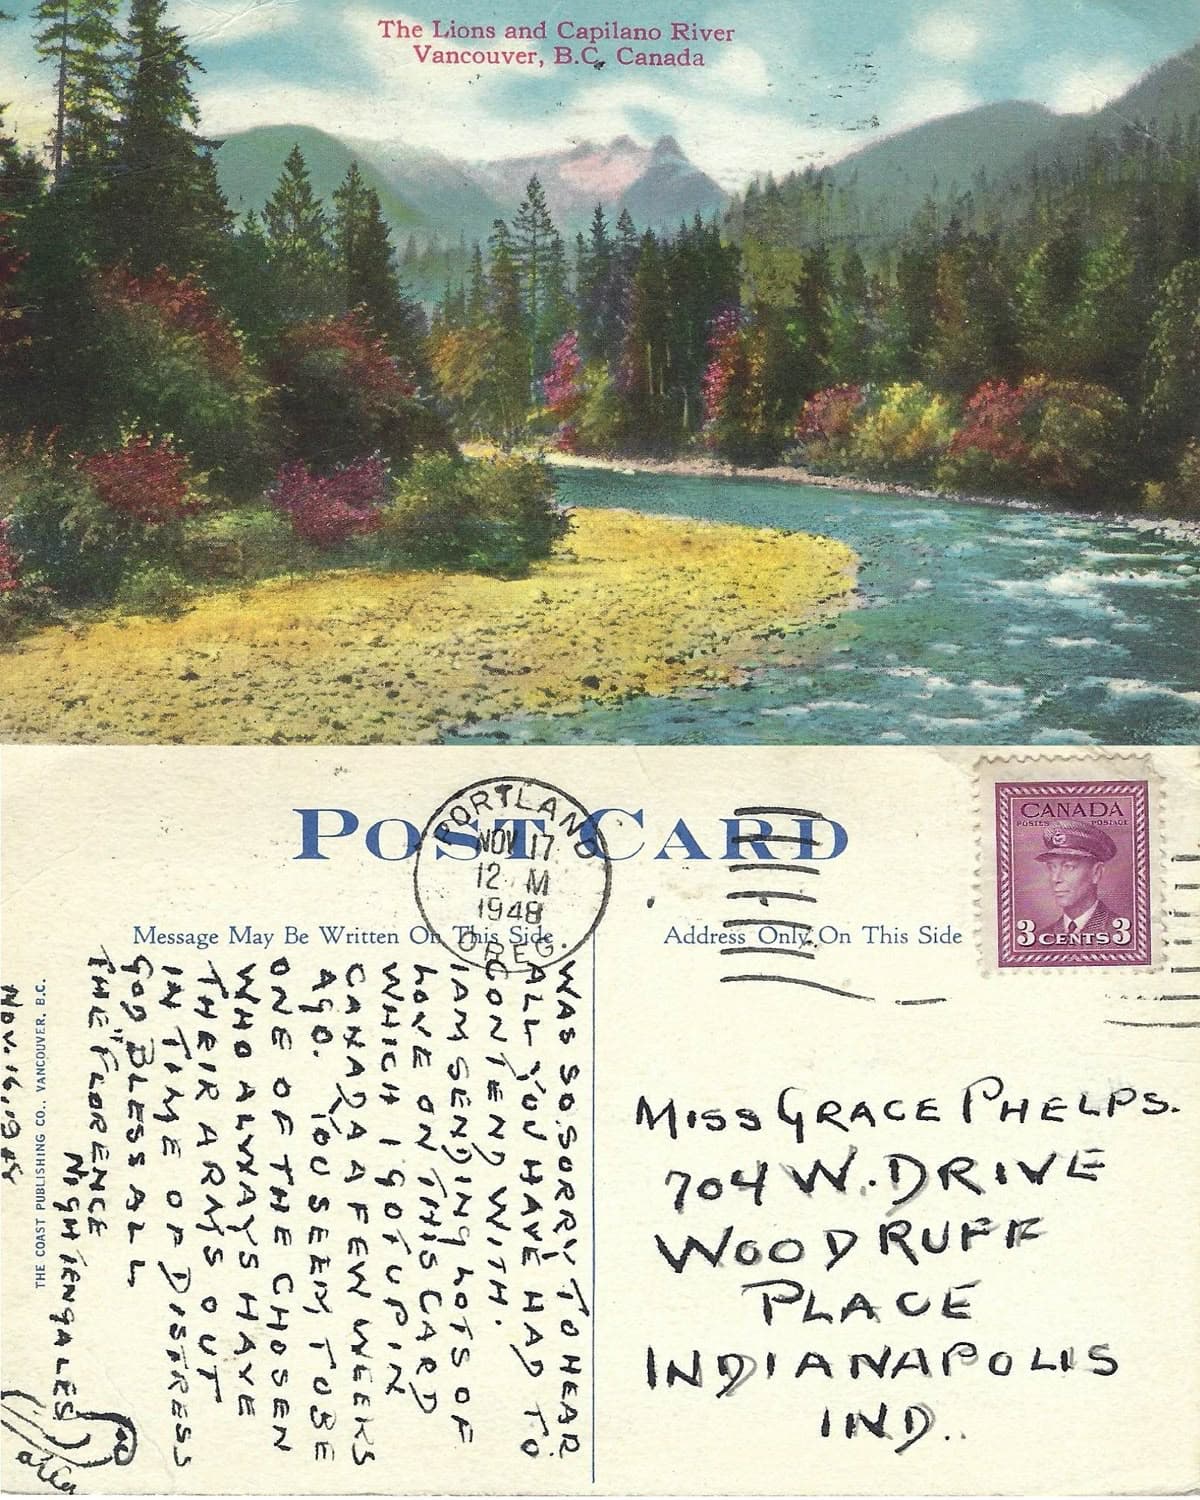 The Lions and Capilano River
Vancouver, B.C. Canada
POST CARD
PORTLAND
NOV 17
12 M
1948
OREG.
CANADA
POSTES POSTAGE
3 CENTS 3
Message May Be Written On This Side.
Address Only On This Side
WAS SO SORRY TO HEAR
ALL YOU HAVE HAD TO
CONTEND WITH.
I AM SENDING LOTS OF
LOVE ON THIS CARD
WHICH I GOT UP IN
CANADA A FEW WEEKS
AGO. YOU SEEM TO BE
ONE OF THE CHOSEN
WHO ALWAYS HAVE
THEIR ARMS OUT
IN TIME OF DISTRESS
GOD BLESS ALL
THE "FLORENCE
NIGHTENGALES)
NOV. 16, 1948
THE COAST PUBLISHING CO., VANCOUVER, B.C.
MISS GRACE PHELPS.
704 W. DRIVE
WOODRUFF
PLACE
INDIANAPOLIS
IND..